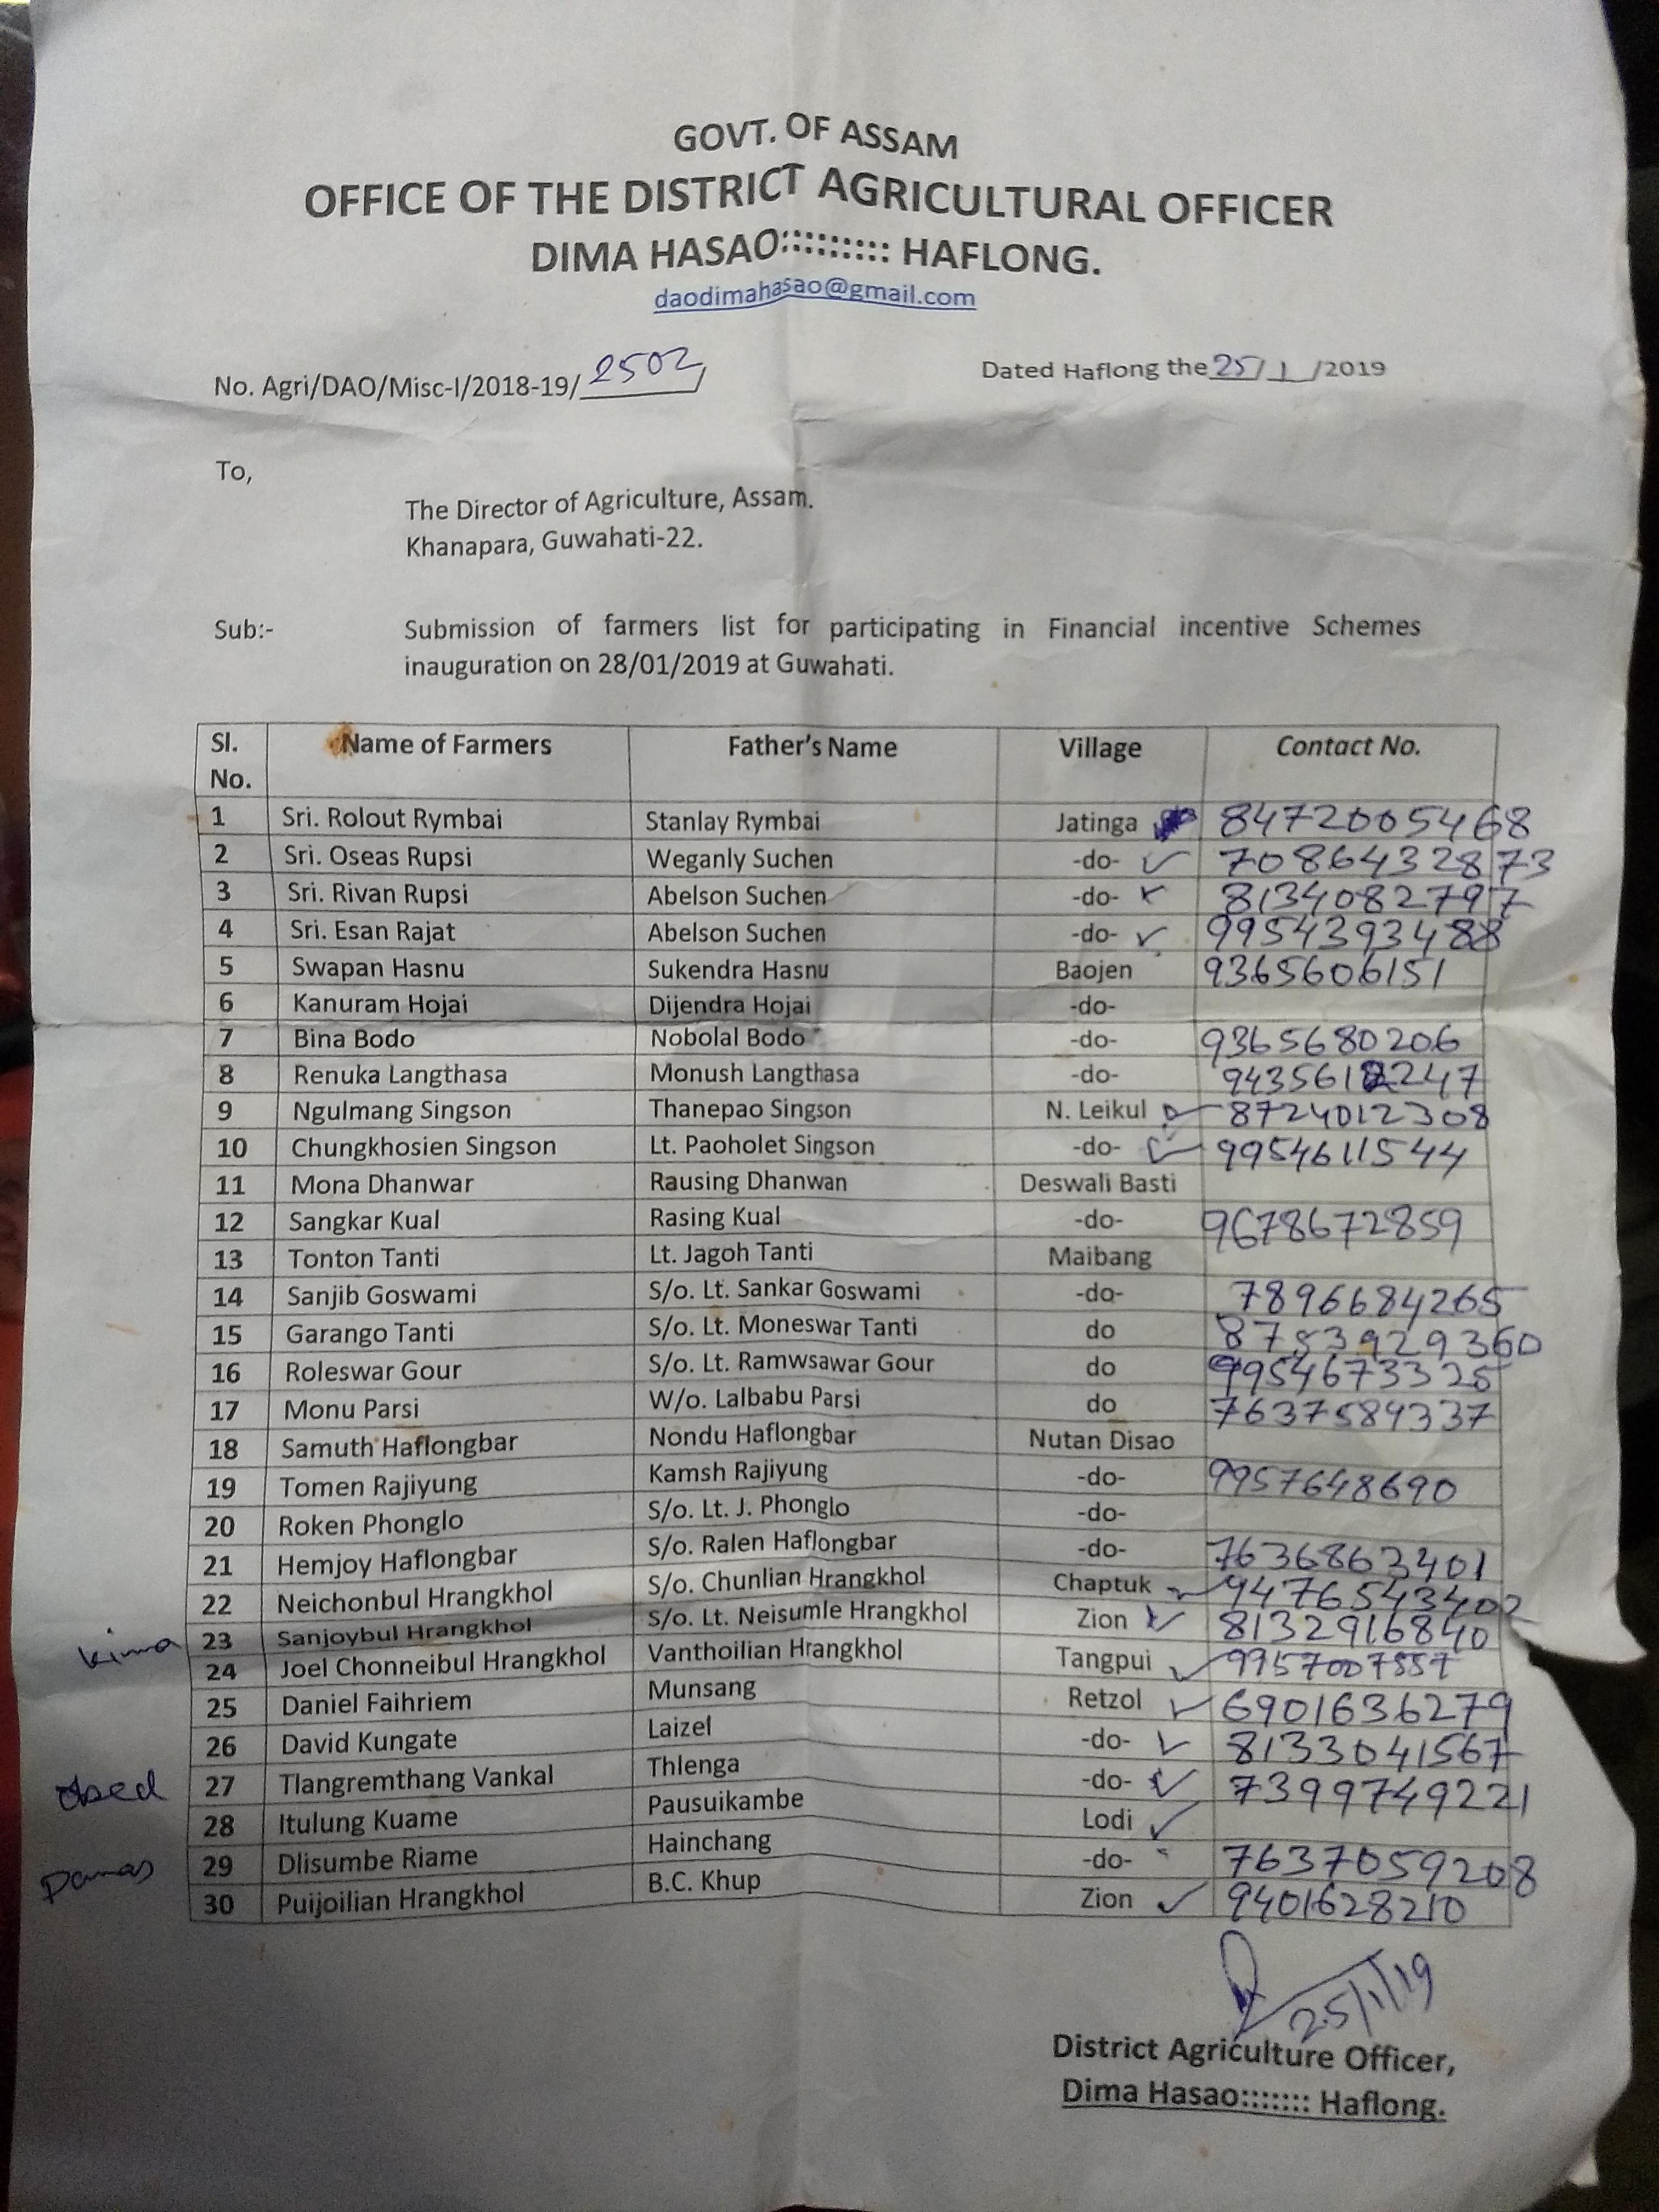 GOVT. OF ASSAM
OFFICE OF THE DISTRICT AGRICULTURAL OFFICER
DIMA HASAO:::::::::: HAFLONG.
daodimahasao@gmail.com
No. Agri/DAO/Misc-I/2018-19/ 2502 Dated Haflong the 25/1/2019
To,
The Director of Agriculture, Assam.
Khanapara, Guwahati-22.
Sub:- Submission of farmers list for participating in Financial incentive Schemes
inauguration on 28/01/2019 at Guwahati.
Sl. No. Name of Farmers Father's Name Village Contact No.
1 Sri. Rolout Rymbai Stanlay Rymbai Jatinga 84720005468
2 Sri. Oseas Rupsi Weganly Suchen -do- 7086432873
3 Sri. Rivan Rupsi Abelson Suchen -do- 8134082797
4 Sri. Esan Rajat Abelson Suchen -do- 9954393488
5 Swapan Hasnu Sukendra Hasnu Baojen 9365606151
6 Kanuram Hojai Dijendra Hojai -do-
7 Bina Bodo Nobolal Bodo -do- 9365680206
8 Renuka Langthasa Monush Langthasa -do-
9 Ngulmang Singson Thanepao Singson N. Leikul 8724012308
10 Chungkhosien Singson Lt. Paoholet Singson -do- 9954611544
11 Mona Dhanwar Rausing Dhanwan Deswali Basti
12 Sangkar Kual Rasing Kual -do- 9678672859
13 Tonton Tanti Lt. Jagoh Tanti Maibang
14 Sanjib Goswami S/o. Lt. Sankar Goswami -do- 7896684265
15 Garango Tanti S/o. Lt. Moneswar Tanti do
16 Roleswar Gour S/o. Lt. Ramwsawar Gour do 9954673325
17 Monu Parsi W/o. Lalbabu Parsi do 7637584337
18 Samuth Haflongbar Nondu Haflongbar Nutan Disao
19 Tomen Rajiyung Kamsh Rajiyung -do- 9957648690
20 Roken Phonglo S/o. Lt. J. Phonglo -do-
21 Hemjoy Haflongbar S/o. Ralen Haflongbar -do- 7636863401
22 Neichonbul Hrangkhol S/o. Chunlian Hrangkhol Chaptuk 9476543402
kima 23 Sanjoybul Hrangkhol S/o. Lt. Neisumle Hrangkhol Zion 8132916840
24 Joel Chonneibul Hrangkhol Vanthoilian Hrangkhol Tangpui 9957007557
25 Daniel Faihriem Munsang Retzol 6901636279
26 David Kungate Laizel -do- 8133041567
27 Tlangremthang Vankal Thlenga -do- 7399749221
28 Itulung Kuame Pausuikambe Lodi
29 Dlisumbe Riame Hainchang -do- 7637059208
30 Puijoilian Hrangkhol B.C. Khup Zion 9401628210
25/1/19
District Agriculture Officer,
Dima Hasao::::::: Haflong.